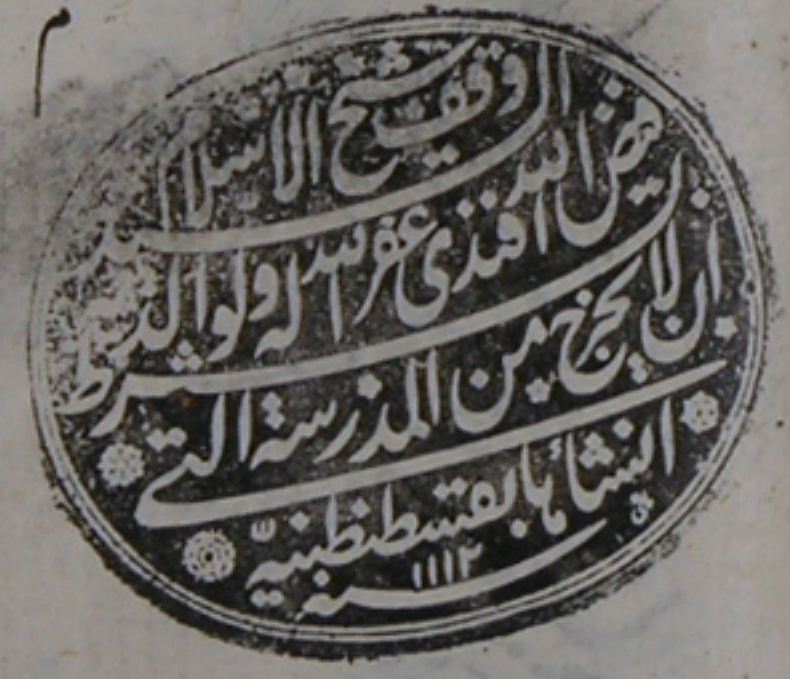 وقف شيخ الاسلام السيد
فيض الله افندى غفر الله له ولوالديه
بشرط ان لا يخرج من المدرسة التى
انشاءها بقسطنطينية
سنه ١١١٢